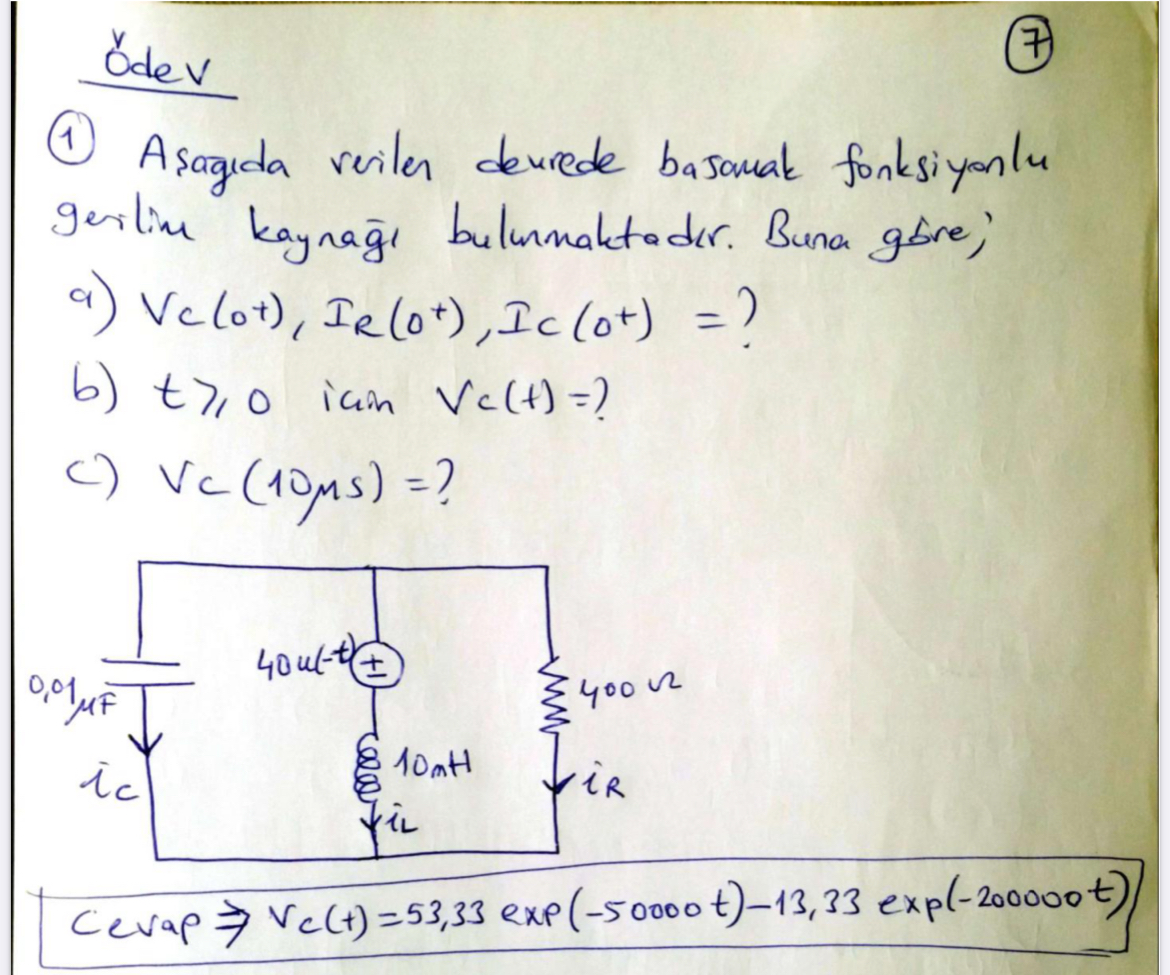 Ödev
7
① Aşağıda verilen devrede basamak fonksiyonlu
gerilim kaynağı bulunmaktadır. Buna göre;
a) Vc(0+), IR(0+), Ic(0+) = ?
b) t ≥ 0 için Vc(t)=?
c) Vc(10μs) =?
40u(-t)
±
0,01μF
400 Ω
10mH
ic
iR
iL
Cevap ⇒ Vc(t) = 53,33 exp(-50000t)-13,33 exp(-200000t)